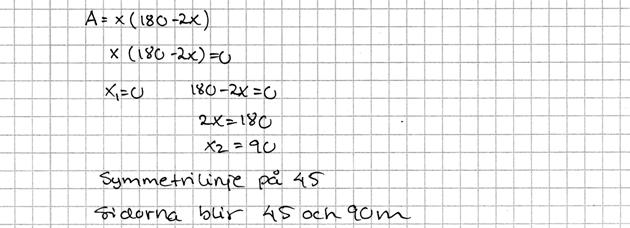 A = x(180-2x)
x(180-2x)=0
x₁=0 180-2x=0
2x=180
x₂=90
Symmetrilinje på 45
Sidorna blir 45 och 90m